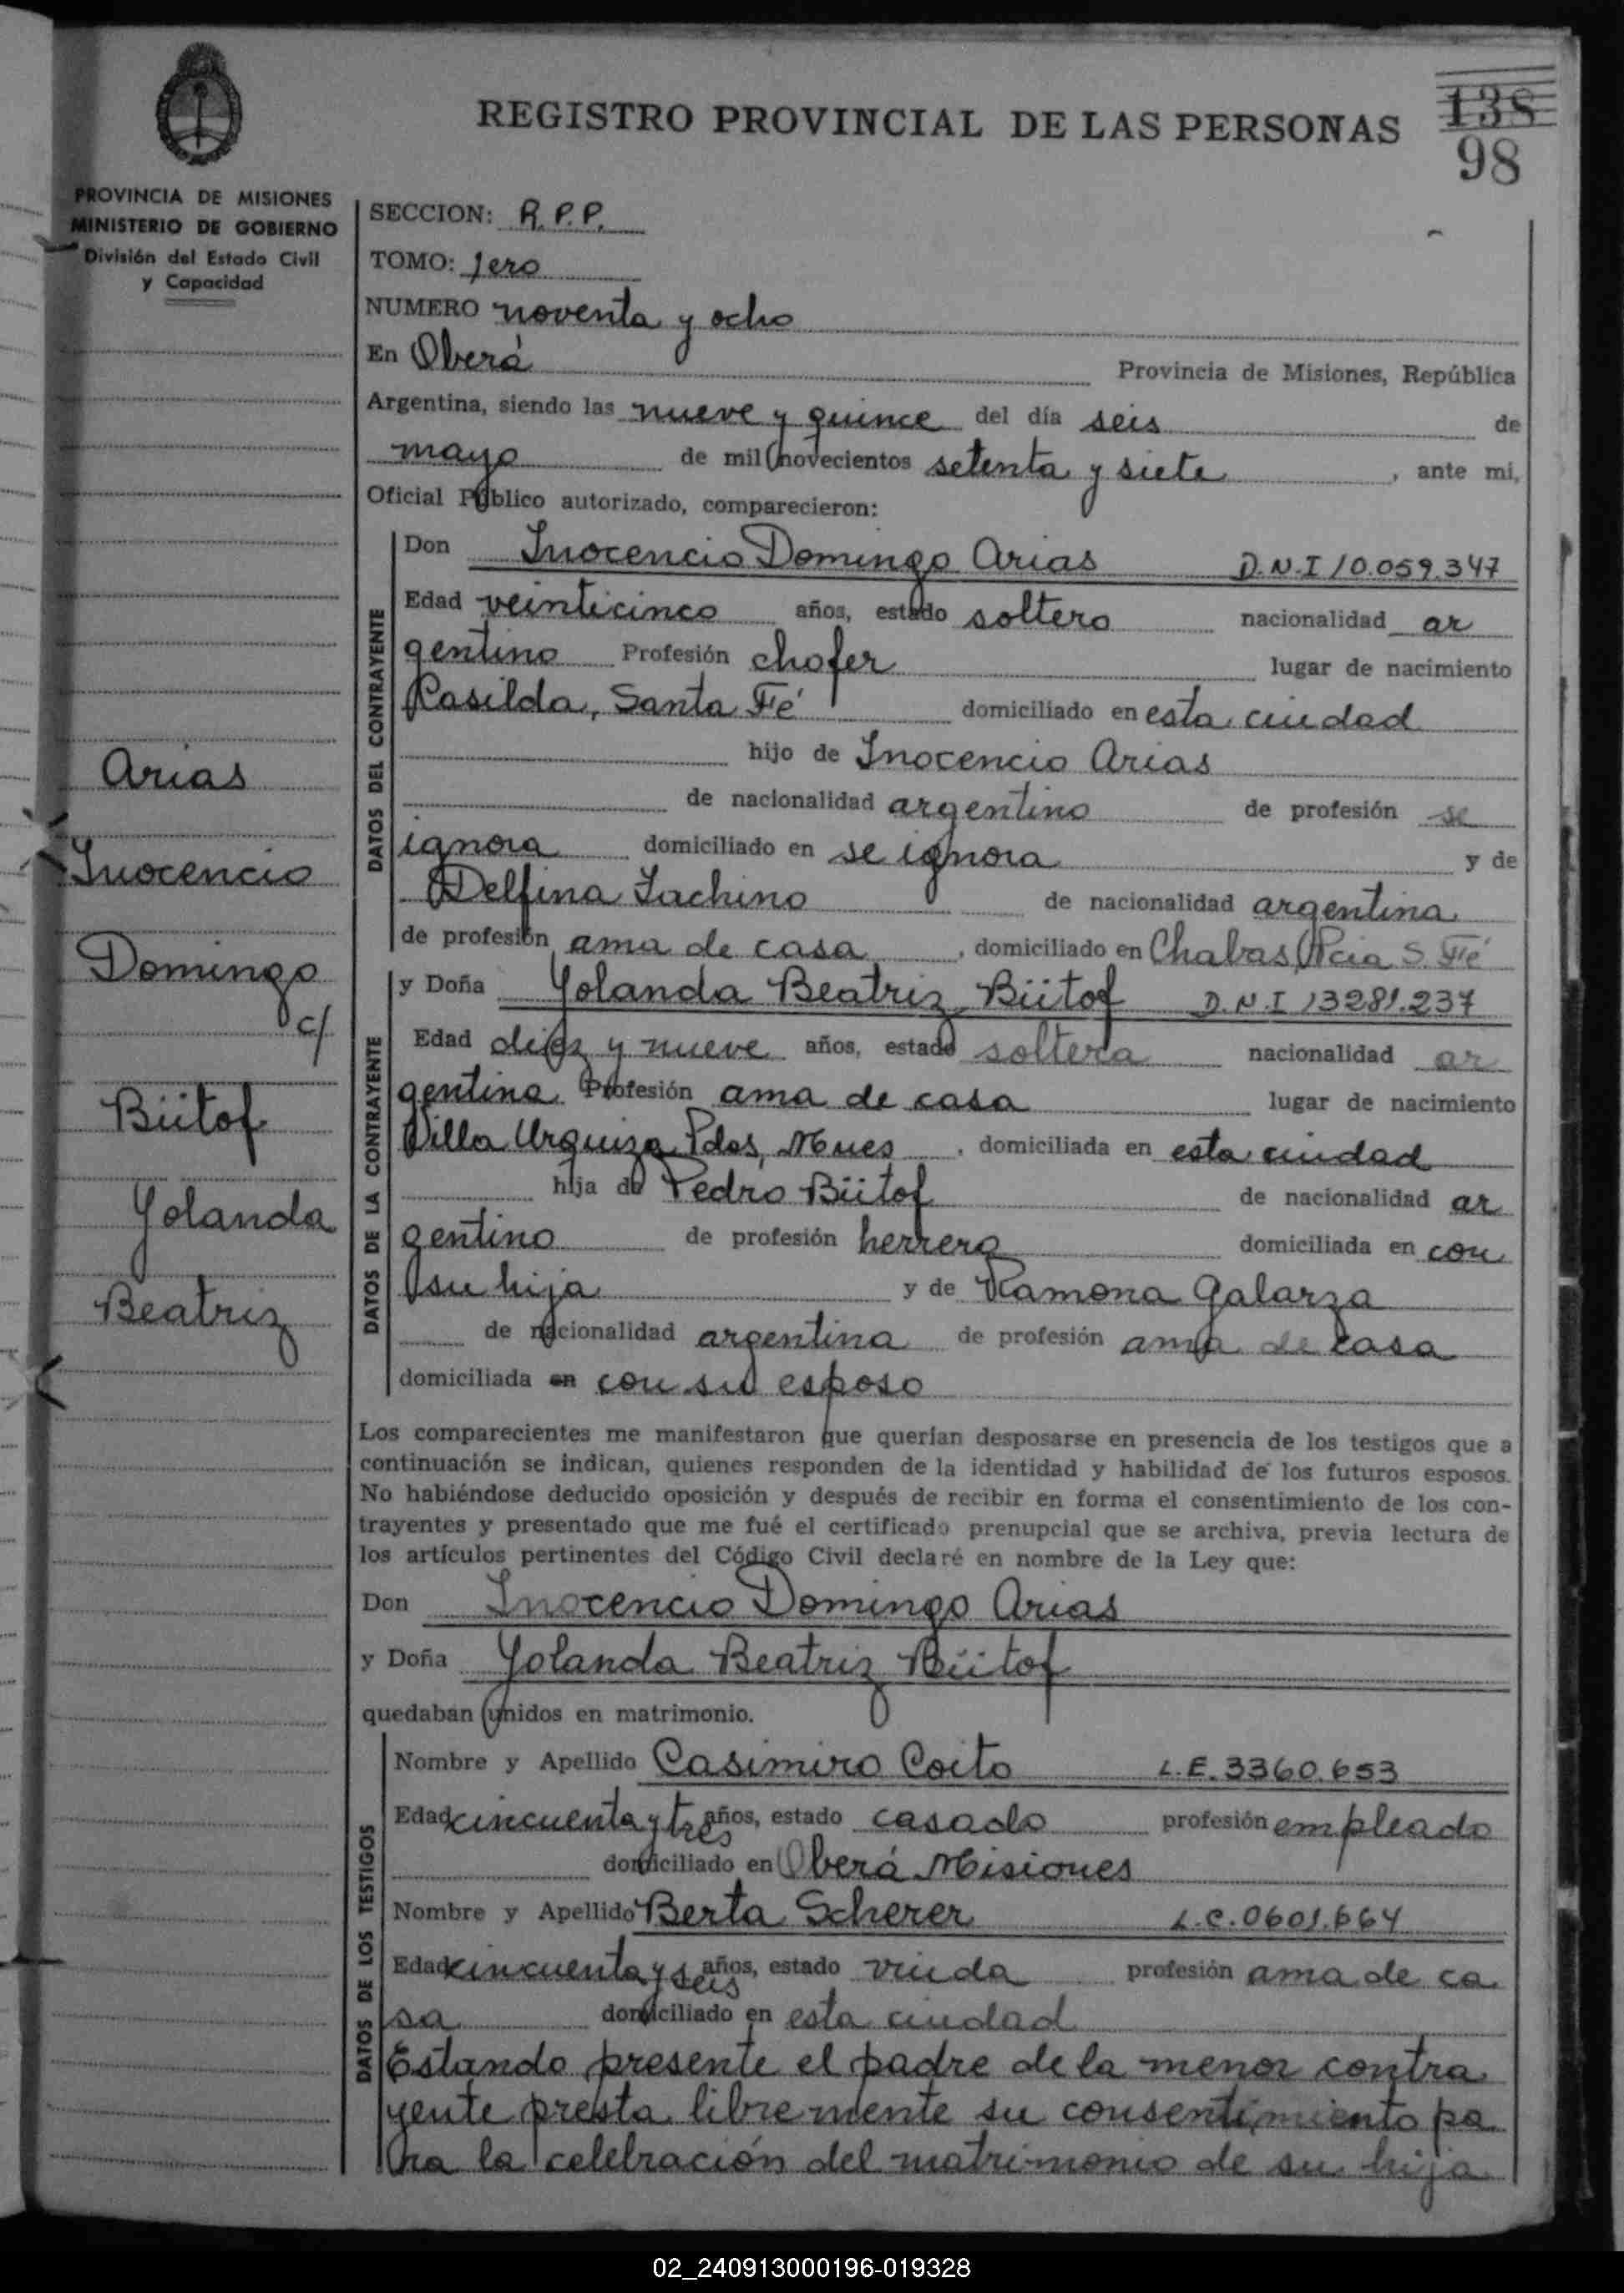 REGISTRO PROVINCIAL DE LAS PERSONAS
138
98
PROVINCIA DE MISIONES
MINISTERIO DE GOBIERNO
División del Estado Civil
y Capacidad
Arias
Inocencio
Domingo
c/
Bütof
Yolanda
Beatriz
SECCION: R.P.P.
TOMO: 1ero
NUMERO noventa y ocho
En Oberá Provincia de Misiones, República
Argentina, siendo las nueve y quince del día seis de
mayo de mil novecientos setenta y siete, ante mi,
Oficial Público autorizado, comparecieron:
DATOS DEL CONTRAYENTE
Don Inocencio Domingo Arias D.N.I 10.059.347
Edad veinticinco años, estado soltero nacionalidad ar
gentino Profesión chofer lugar de nacimiento
Casilda, Santa Fé domiciliado en esta ciudad
hijo de Inocencio Arias
de nacionalidad argentino de profesión se
ignora domiciliado en se ignora y de
Delfina Iachino de nacionalidad argentina
de profesión ama de casa, domiciliado en Chabas Pcia S. Fé
DATOS DE LA CONTRAYENTE
y Doña Yolanda Beatriz Bütof D.N.I 13281.237
Edad diez y nueve años, estado soltera nacionalidad ar
gentina Profesión ama de casa lugar de nacimiento
Villa Urquiza Pdas, Mnes, domiciliada en esta ciudad
hija de Pedro Bütof de nacionalidad ar
gentino de profesión herrero domiciliada en con
su hija y de Ramona Galarza
de nacionalidad argentina de profesión ama de casa
domiciliada en con su esposo
Los comparecientes me manifestaron que querían desposarse en presencia de los testigos que a
continuación se indican, quienes responden de la identidad y habilidad de los futuros esposos.
No habiéndose deducido oposición y después de recibir en forma el consentimiento de los con-
trayentes y presentado que me fué el certificado prenupcial que se archiva, previa lectura de
los artículos pertinentes del Código Civil declaré en nombre de la Ley que:
Don Inocencio Domingo Arias
y Doña Yolanda Beatriz Büitof
quedaban unidos en matrimonio.
DATOS DE LOS TESTIGOS
Nombre y Apellido Casimiro Coito L.E. 3360.653
Edad cincuenta y tres años, estado casado profesión empleado
domiciliado en Oberá Misiones
Nombre y Apellido Berta Scherer L.C. 0601.664
Edad cincuenta y seis años, estado viuda profesión ama de ca
sa domiciliado en esta ciudad
Estando presente el padre de la menor contra
yente presta libremente su consentimiento pa
ra la celebración del matrimonio de su hija
02_240913000196-019328